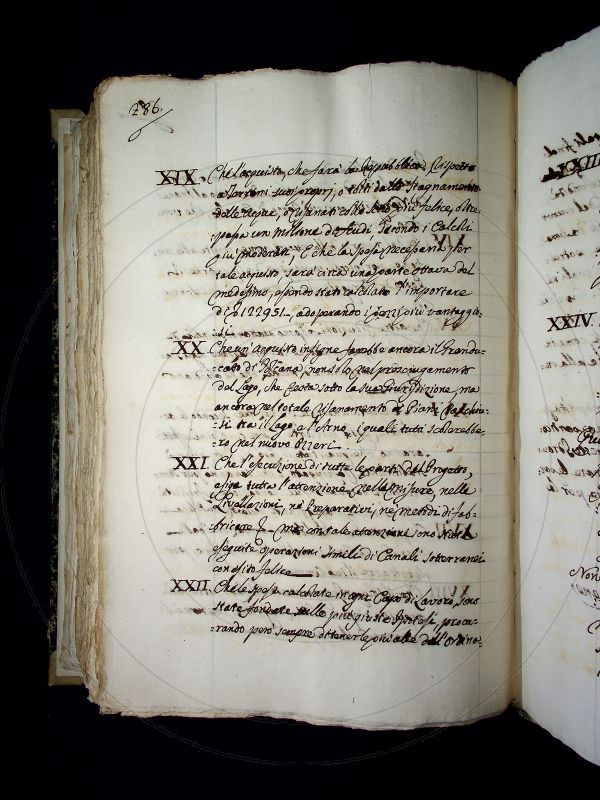 286.
XIX. Che l'acquisto, che farà la Repubblica rispetto
a Terreni suoi proprj, o tolti dallo stagnamento
delle acque, o risanati collo scolo più felice, oltre
passa un milione di scudi secondo i Calcoli
più moderati, e che la spesa necessaria per
tale acquisto, sarà circa una parte ottava del
medesimo, essendo stata calcolata l'importare
di 122951, adoperando i più vantaggio
si.
XX. Che un' acquisto insigne farebbe ancora il Grandu-
cato di Toscana, non solo nel prosciugamento
del Lago, che resta sotto la sua Giurisdizione, ma
ancora nel totale risanamento di Piani
si tra il Lago e l'Arno, i quali tutti scolerebbe-
ro nel nuovo Ozzeri.
XXI. Che l'esecuzione di tutte le parti del Progetto,
esige tutta l'attenzione nelle misure, nelle
Livellazioni, ne Preparativi, ne metodi di fab-
bricare, ma con tale attenzione sono state
eseguite operazioni simili di Canali sotterranei
con esito felice.
XXII. Che le spese calcolate in ogni Capo di Lavoro, sono
state fondate sulle più giuste Ipotese, procu-
rando però sempre di tenerle più alte dell'ordina-
XXIII
XXIV.